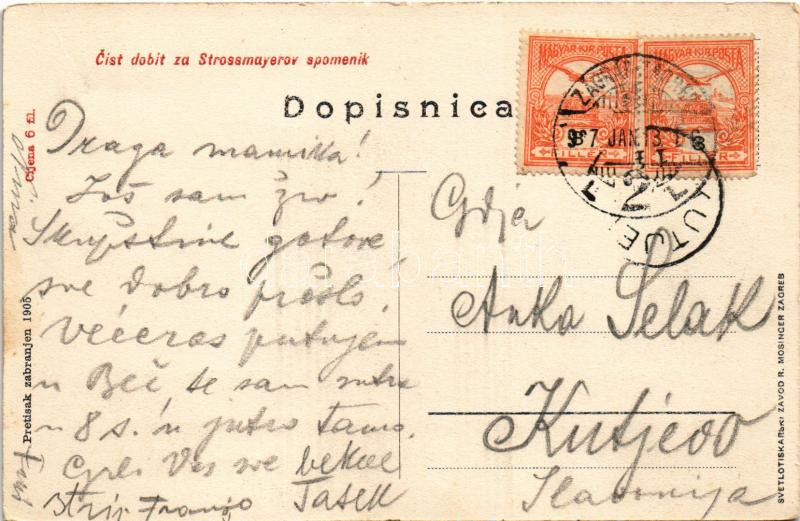 Čist dobit za Strossmayerov spomenik
Dopisnica
MAGYAR KIR. POSTA MAGYAR KIR. POSTA
FILLÉR FILLÉR
ZAGREB
907 JAN. 13.
KUTJE
Draga mamika!
Još sam živ!
Skupštine gotove
sve dobro prošlo,
večeras putujem
u Beč te sam sutra
u 8 s. u jutro tamo.
Grli Vas sve
Franjo
Gdja
Anka Šelak
Kutjevo
Slavonija
Cijena 6 fil.
Pretisak zabranjen 1905
SVETLOTISKARSKI ZAVOD R. MOSINGER ZAGREB
darabanth